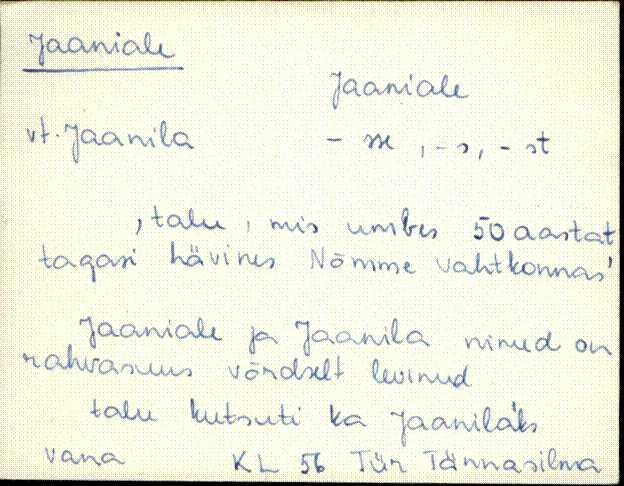 Jaaniale
Jaaniale
vt. Jaanila - sse, -s, -st
, talu, mis umbes 50 aastat
tagasi hävines Nõmme vahtkonnas'
Jaaniale ja Jaanila nimed on
rahvasuus võrdselt levinud
talu kutsuti ka Jaanilaks
vana KL 56 Tür Tännasilma